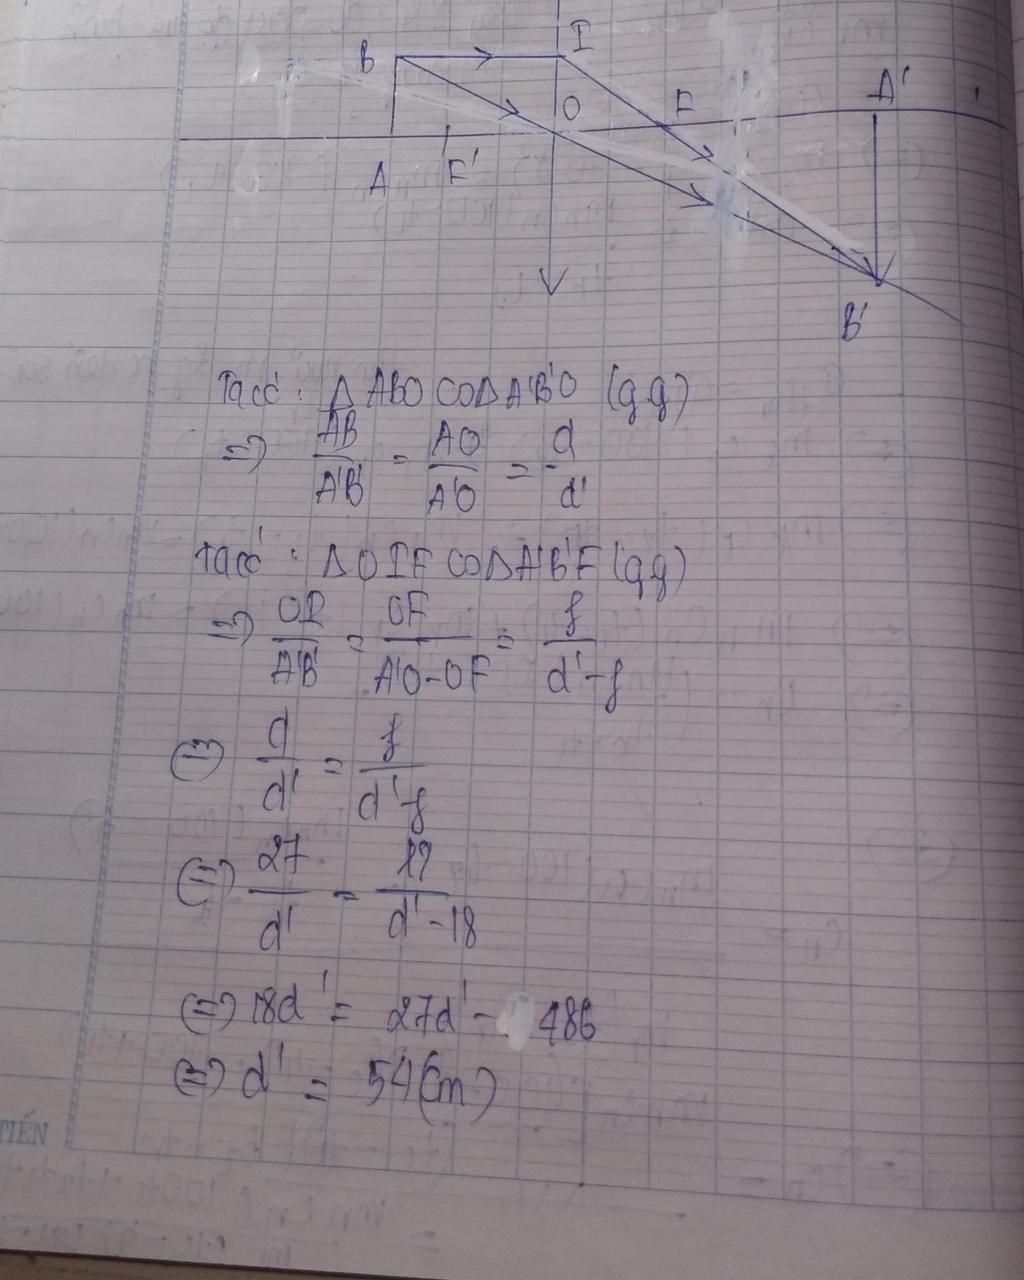 B I
O F A'
A F'
B'
Ta có: Δ ABO ∽ Δ A'B'O (g.g)
=> AB/A'B' = AO/A'O = d/d'
Ta có: Δ OIF ∽ Δ A'B'F (g.g)
=> OI/A'B' = OF/A'O-OF = f/d'-f
(=) d/d' = f/d'-f
(=) 27/d' = 18/d'-18
(=) 18d' = 27d' - 486
(=) d' = 54 (cm)
TIẾN